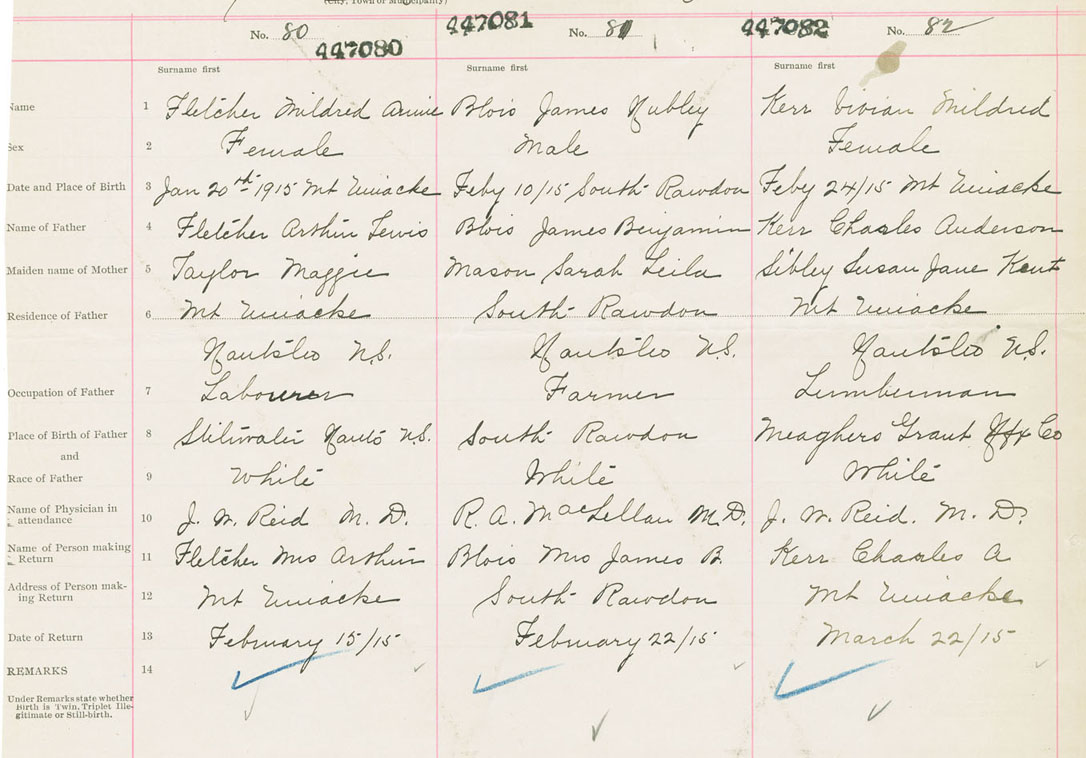 (City, Town or Municipality)
No. 80
447080
447081
No. 81
447082
No. 82
Surname first
Surname first
Surname first
Name 1 Fletcher Mildred Annie Blois James Hubley Kerr Vivian Mildred
Sex 2 Female Male Female
Date and Place of Birth 3 Jan 20th 1915 Mt Uniacke Feby 10/15 South Rawdon Feby 24/15 Mt Uniacke
Name of Father 4 Fletcher Arthur Lewis Blois James Benjamin Kerr Charles Anderson
Maiden name of Mother 5 Taylor Maggie Mason Sarah Leila Sibley Susan Jane Kent
Residence of Father 6 Mt Uniacke South Rawdon Mt Uniacke
Hants Co N.S. Hants Co N.S. Hants Co N.S.
Occupation of Father 7 Labourer Farmer Lumberman
Place of Birth of Father 8 Stilwater Hants N.S. South Rawdon Meaghers Grant Hfx Co
and
Race of Father 9 White White White
Name of Physician in
attendance 10 J. W. Reid M. D. R. A. MacLellan M.D. J. W. Reid. M. D.
Name of Person making
Return 11 Fletcher Mrs Arthur Blois Mrs James B. Kerr Charles A
Address of Person mak-
ing Return 12 Mt Uniacke South Rawdon Mt Uniacke
Date of Return 13 February 15/15 February 22/15 March 22/15
REMARKS 14
Under Remarks state whether
Birth is Twin, Triplet Ille-
gitimate or Still-birth.